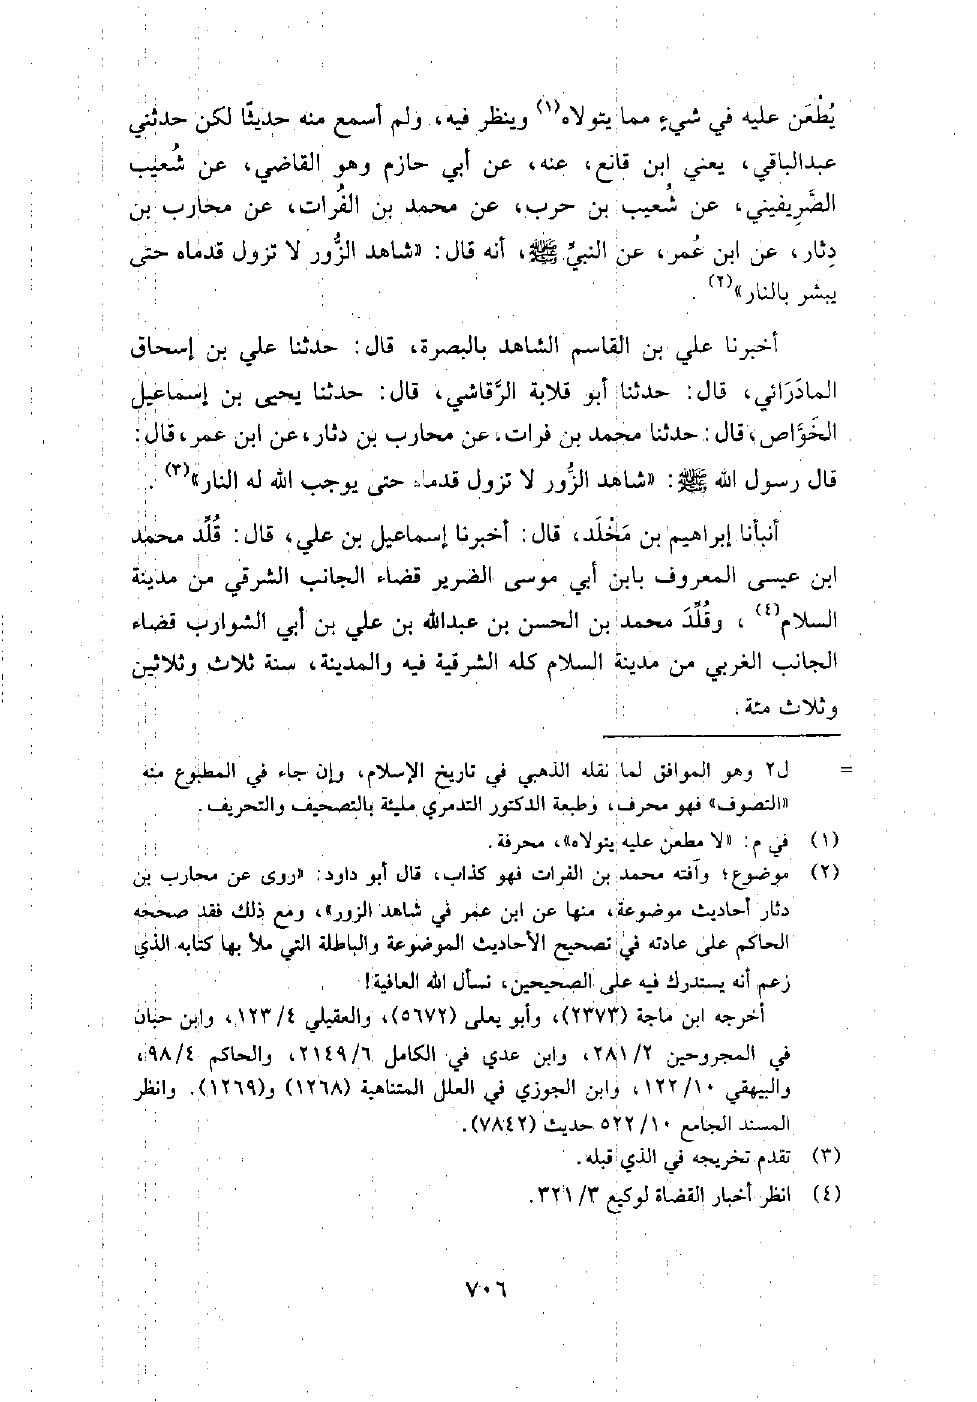 يُطْعَن عليه في شيءٍ مما يتولاه(١) وينظر فيه، ولم أسمع منه حديثًا لكن حدثني
عبدالباقي، يعني ابن قانع، عنه، عن أبي حازم وهو القاضي، عن شُعيب
الصَّرِيفيني، عن شُعيب بن حرب، عن محمد بن الفُرات، عن محارب بن
دِثار، عن ابن عُمر، عن النبيِّ ﷺ، أنه قال: «شاهد الزُّور لا تزول قدماه حتى
يبشر بالنار»(٢).
أخبرنا علي بن القاسم الشاهد بالبصرة، قال: حدثنا علي بن إسحاق
المادَرَائي، قال: حدثنا أبو قلابة الرَّقاشي، قال: حدثنا يحيى بن إسماعيل
الخَوَّاص، قال: حدثنا محمد بن فرات، عن محارب بن دثار، عن ابن عمر، قال:
قال رسول الله ﷺ: «شاهد الزُّور لا تزول قدماه حتى يوجب الله له النار»(٣).
أنبأنا إبراهيم بن مَخْلَد، قال: أخبرنا إسماعيل بن علي، قال: قُلِّد محمد
ابن عيسى المعروف بابن أبي موسى الضرير قضاء الجانب الشرقي من مدينة
السلام(٤)، وقُلِّدَ محمد بن الحسن بن عبدالله بن علي بن أبي الشوارب قضاء
الجانب الغربي من مدينة السلام كله الشرقية فيه والمدينة، سنة ثلاث وثلاثين
وثلاث مئة.
= ل٢ وهو الموافق لما نقله الذهبي في تاريخ الإسلام، وإن جاء في المطبوع منه
«التصوف» فهو محرف، وطبعة الدكتور التدمري مليئة بالتصحيف والتحريف.
(١) في م: «لا مطعن عليه يتولاه»، محرفة.
(٢) موضوع؛ وآفته محمد بن الفرات فهو كذاب، قال أبو داود: «روى عن محارب بن
دثار أحاديث موضوعة، منها عن ابن عمر في شاهد الزور»، ومع ذلك فقد صححه
الحاكم على عادته في تصحيح الأحاديث الموضوعة والباطلة التي ملأ بها كتابه الذي
زعم أنه يستدرك فيه على الصحيحين، نسأل الله العافية!
أخرجه ابن ماجة (٢٣٧٣)، وأبو يعلى (٥٦٧٢)، والعقيلي ٤/ ١٢٣، وابن حبان
في المجروحين ٢/ ٢٨١، وابن عدي في الكامل ٦/ ٢١٤٩، والحاكم ٤/ ٩٨،
والبيهقي ١٠/ ١٢٢، وابن الجوزي في العلل المتناهية (١٢٦٨) و(١٢٦٩). وانظر
المسند الجامع ١٠/ ٥٢٢ حديث (٧٨٤٢).
(٣) تقدم تخريجه في الذي قبله.
(٤) انظر أخبار القضاة لوكيع ٣/ ٣٢١.
٧٠٦